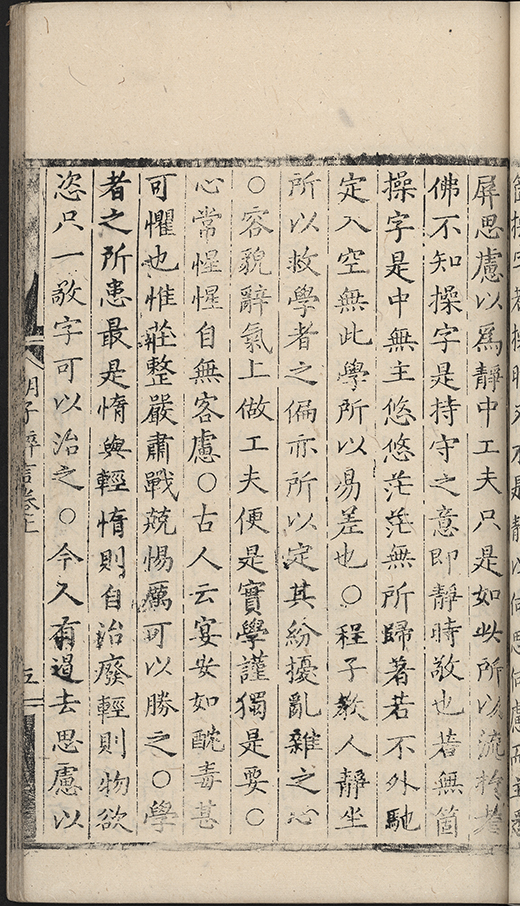 屏思慮以爲靜中工夫只是如此所以流於老
佛不知操字是持守之意即靜時敬也若無箇
操字是中無主悠悠茫茫無所歸著若不外馳
定入空無此學所以易差也○程子教人靜坐
所以救學者之偏亦所以定其紛擾亂雜之心
○容貌辭氣上做工夫便是實學謹獨是要○
心常惺惺自無客慮○古人云宴安如酖毒甚
可懼也惟莊整嚴肅戰兢惕厲可以勝之○學
者之所患最是惰與輕惰則自治廢輕則物欲
恣只一敬字可以治之○今人有過去思慮以
胡子粹言卷上 五